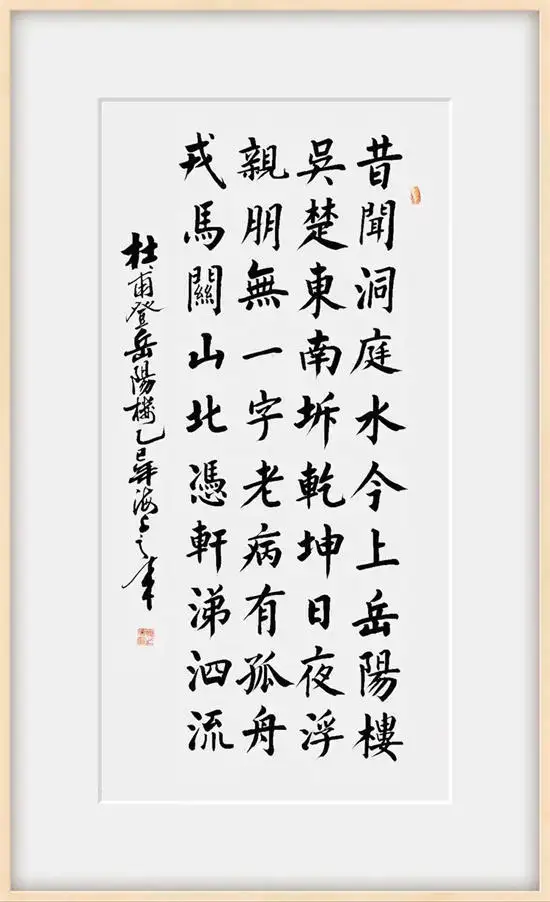 昔聞洞庭水今上岳陽樓
吳楚東南坼乾坤日夜浮
親朋無一字老病有孤舟
戎馬關山北憑軒涕泗流
杜甫登岳陽樓乙巳年海上之